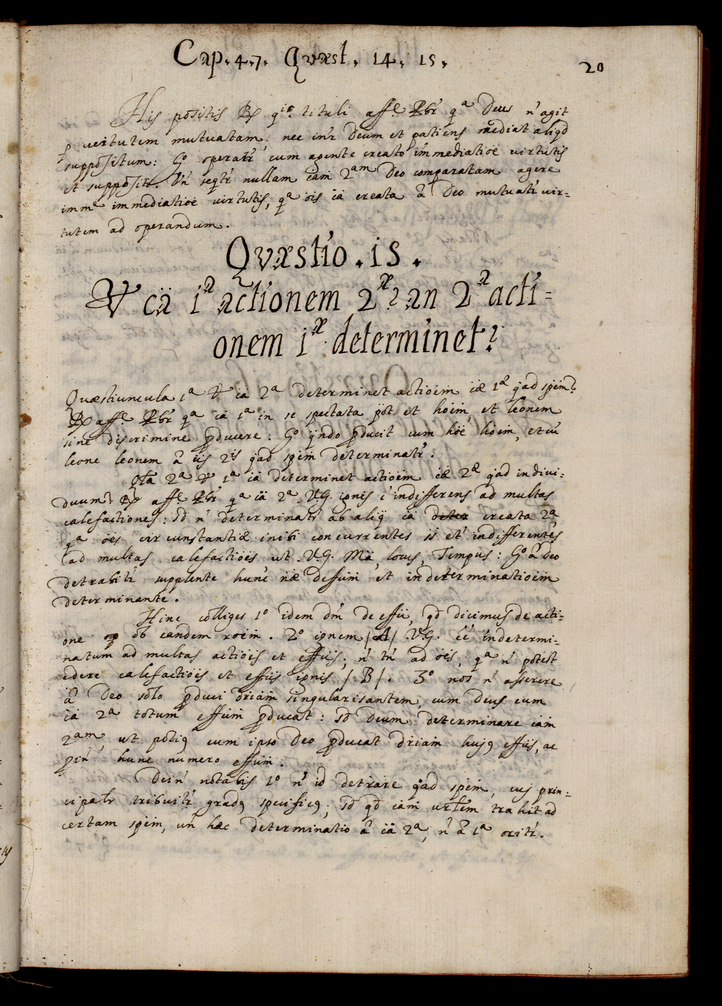 Cap. 4. 7. Quæst. 14. 15.
20
His positis Rs qio. tituli affe qa Deus n̄ agit
p vertutem mutuatam, nec intr Deum et patiens mediat aliqd
suppositum: Go operatr cum agente creato immediatioē virtutis
et suppositi. Un seqtr nullam cam 2am Deo comparatam agere
imme immediatioē virtutis, qa ois cā creata à Deo mutuatr vir=
tutem ad operandum.
Quæstio. 15.
Ut cā ia actionem 2æ? an 2a acti=
onem iæ determinet?
Quæstiuncula 1a Ut cā 2a determinet actioēm cæ 1æ qad spēm?
Rs affe qa cā 1a in se spectata pot et hoīem et leonem
sine discrimine pducere: Go qndo pducit cum hoē hoēm, et cū
leone leonem à cīs 2is qad spēm determinatr.
Qta 2a Ut 1a cā determinet actioēm cæ 2æ qad indivi-
duum? Rs affe qa cā 2a V.G. ignis ē indifferens ad multas
calefactiones: sd n̄ determinatr ab aliq cā creata 2a
qa oēs circunstantiæ inibi concurrentes st et indifferentes
ad multas calefactioēs ut V.G. Mā, locus, Tempus: Go à Deo
detrahitr supplente hunc næ deffum et indeterminatioēm
determinante.
Hinc colliges 1o idem dm de effu, qd dicimus de acti-
one ob eandem roēm. 2o ignem /A/ V.G. eē indetermi-
natum ad multas actioēs et effus, n̄ tn ad oēs, qa n̄ potest
edere calefactioēs et effus ignis /B/. 3o nos n̄ asserere
à Deo solo pduci driam singularisantem, cum Deus cum
cā 2a totum effum pducat: sd Deum determinare cam
2am ut potiq cum ipso Deo pducat driam hujq effus, ac
hunc numero effum.
Dein notabis 1o n̄ id detrare qad spēm, cuj prin-
cipatr tribuitr gradq specificq; sd qd cam urlem trahit ad
certam spēm, un hæc determinatio à cā 2a, n̄ à 1a oritr.